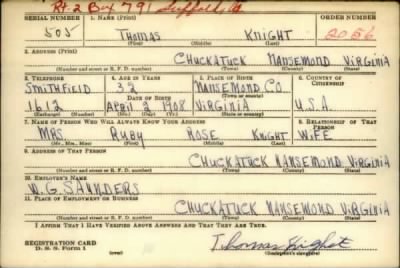 Rt. 2 Box 791 Suffolk, Va
SERIAL NUMBER 1. NAME (Print) ORDER NUMBER
505 THOMAS KNIGHT
(First) (Middle) (Last)
2. ADDRESS (Print)
CHUCKATUCK NANSEMOND VIRGINIA
(Number and street or R. F. D. number) (Town) (County) (State)
3. TELEPHONE 4. AGE IN YEARS 5. PLACE OF BIRTH 6. COUNTRY OF CITIZENSHIP
SMITHFIELD 32 NANSEMOND CO.
DATE OF BIRTH (Town or county)
1612 APRIL 2 1908 VIRGINIA U.S.A.
(Exchange) (Number) (Mo.) (Day) (Yr.) (State or country)
7. NAME OF PERSON WHO WILL ALWAYS KNOW YOUR ADDRESS 8. RELATIONSHIP OF THAT PERSON
MRS RUBY ROSE KNIGHT WIFE
(Mr., Mrs., Miss) (First) (Middle) (Last)
9. ADDRESS OF THAT PERSON
CHUCKATUCK NANSEMOND VIRGINIA
(Number and street or R. F. D. number) (Town) (County) (State)
10. EMPLOYER'S NAME
W.G. SAUNDERS
11. PLACE OF EMPLOYMENT OR BUSINESS
CHUCKATUCK NANSEMOND VIRGINIA
(Number and street or R. F. D. number) (Town) (County) (State)
I AFFIRM THAT I HAVE VERIFIED ABOVE ANSWERS AND THAT THEY ARE TRUE.
REGISTRATION CARD
D. S. S. Form 1 Thomas Knight